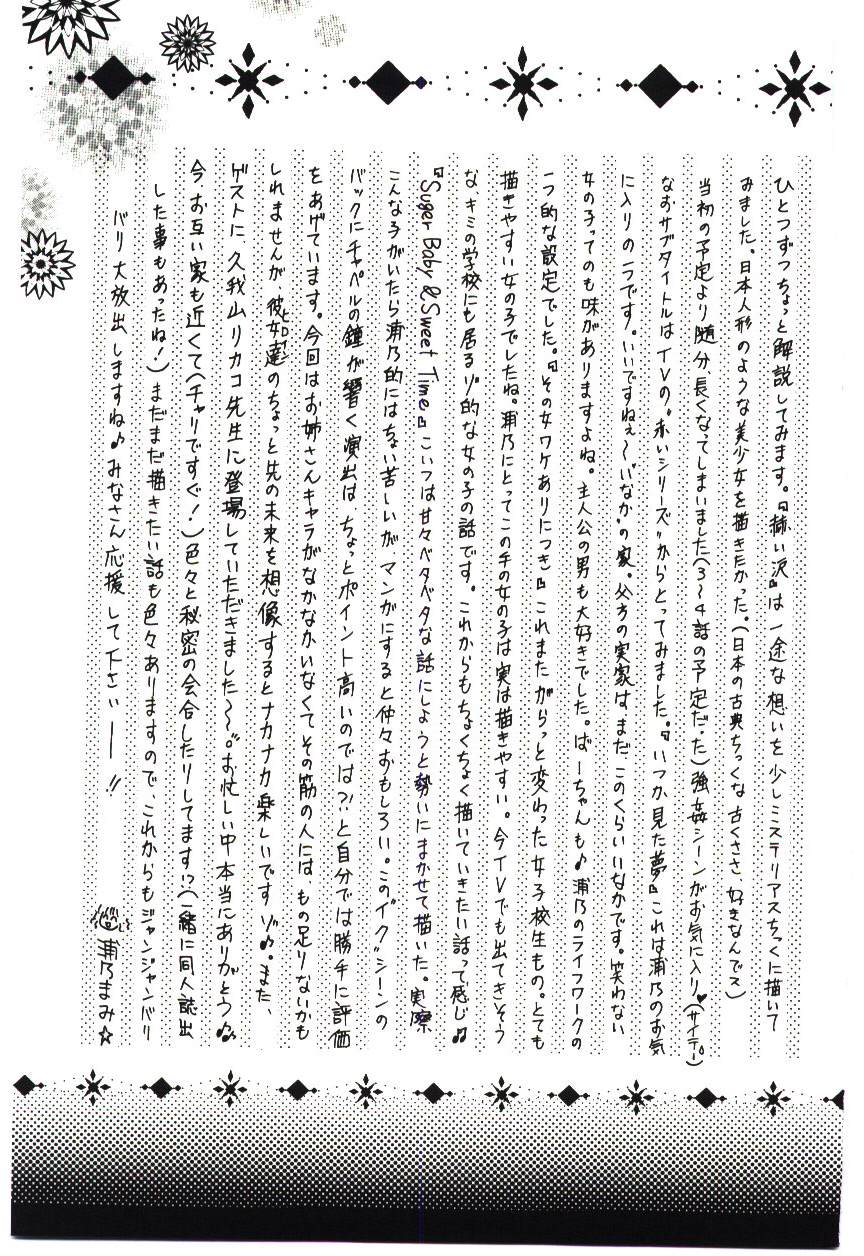 ひとつずつちょっと解説してみます。『赫い沢』は一途な想いを少しミステリアスちっくに描いて
みました。日本人形のような美少女を描きたかった。(日本の古典ちっくな古くささ、好きなんでス)
当初の予定より随分長くなってしまいました(3〜4話の予定だった)強姦シーンがお気に入り♥(サイテー)
なおサブタイトルはTVの"赤いシリーズ"からとってみました。『いつか見た夢』これは浦乃のお気
に入りの一つです。いいですねぇ〜"いなか"の家。父方の実家は、まだこのくらいいなかです。笑わない
女の子ってのも味がありますよね。主人公の男も大好きでした。ばーちゃんも♪浦乃のライフワークの
一つ的な設定でした。『その女ワケありにつき』これまたがらっと変わった女子校生もの。とても
描きやすい女の子でしたね。浦乃にとってこの手の女の子は実は描きやすい。今TVでも出てきそう
な、キミの学校にも居るゾ的な女の子の話です。これからもちょくちょく描いていきたい話って感じ♫
『Suger Baby & Sweet Time』こいつは甘々ベタベタな話にしようと勢いにまかせて描いた。実際
こんな子がいたら浦乃的にはちょい苦しいがマンガにすると仲々おもしろい。この"イク"シーンの
バックにチャペルの鐘が響く演出は、ちょっとポイント高いのでは?!と自分では勝手に評価
をあげています。今回はお姉さんキャラがなかなかいなくてその筋の人には、もの足りないかも
しれませんが、彼女達(ヒロイン)のちょっと先の未来を想像するとナカナカ楽しいですゾ♪。また、
ゲストに久我山リカコ先生に登場していただきました〜。お忙しい中本当にありがとう♫
今お互い家も近くて(チャリですぐ!)色々と秘密の会合したりしてます!?(一緒に同人誌出
した事もあったね!)まだまだ描きたい話も色々ありますので、これからもジャンジャンバリ
バリ大放出しますね♪みなさん応援して下さいーー!!
浦乃まみ☆